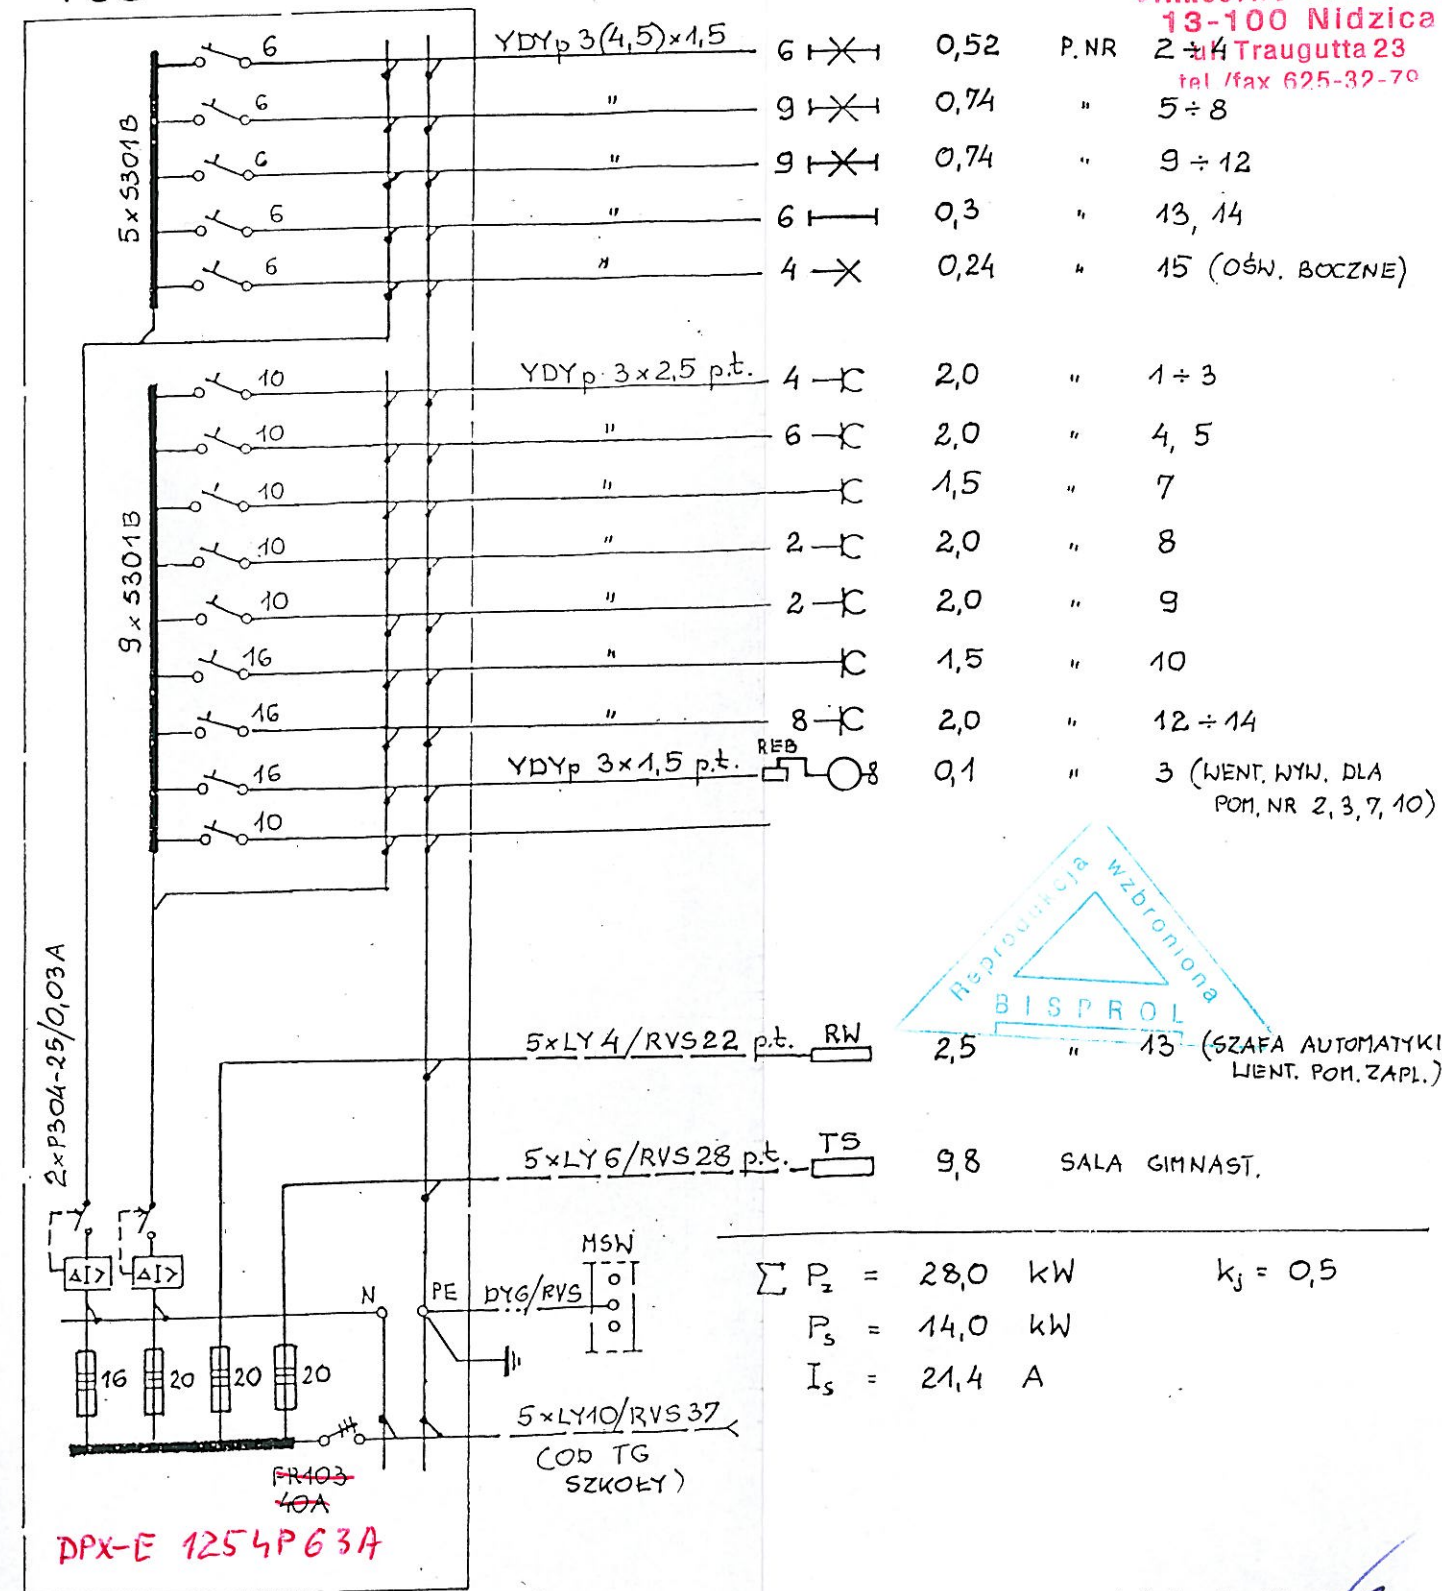 13-100 Nidzica
ul. Traugutta 23
tel /fax 625-32-70
5xS301B
6 YDYp 3(4,5)x1,5 6 0,52 P.NR 2÷4
6 " 9 0,74 " 5÷8
6 " 9 0,74 " 9÷12
6 " 6 0,3 " 13, 14
6 " 4 0,24 " 15 (OŚW. BOCZNE)
9xS301B
10 YDYp 3x2,5 p.t. 4 2,0 " 1÷3
10 " 6 2,0 " 4, 5
10 " 1,5 " 7
10 " 2 2,0 " 8
10 " 2 2,0 " 9
16 " 1,5 " 10
16 " 8 2,0 " 12÷14
16 YDYp 3x1,5 p.t. REB 8 0,1 " 3 (WENT. WYW. DLA
POM. NR 2, 3, 7, 10)
10
Reprodukcja wzbroniona
BISPROL
2xP304-25/0,03A
5xLY4/RVS22 p.t. RW 2,5 " 13 (SZAFA AUTOMATYKI
WENT. POM. ZAPL.)
5xLY6/RVS28 p.t. TS 9,8 SALA GIMNAST.
ΔI> ΔI>
N PE DY6/RVS MSW
Σ Pz = 28,0 kW kj = 0,5
Ps = 14,0 kW
Is = 21,4 A
16 20 20 20
5xLY10/RVS37
(OD TG
SZKOŁY)
FR103
40A
DPX-E 125 4P 63A